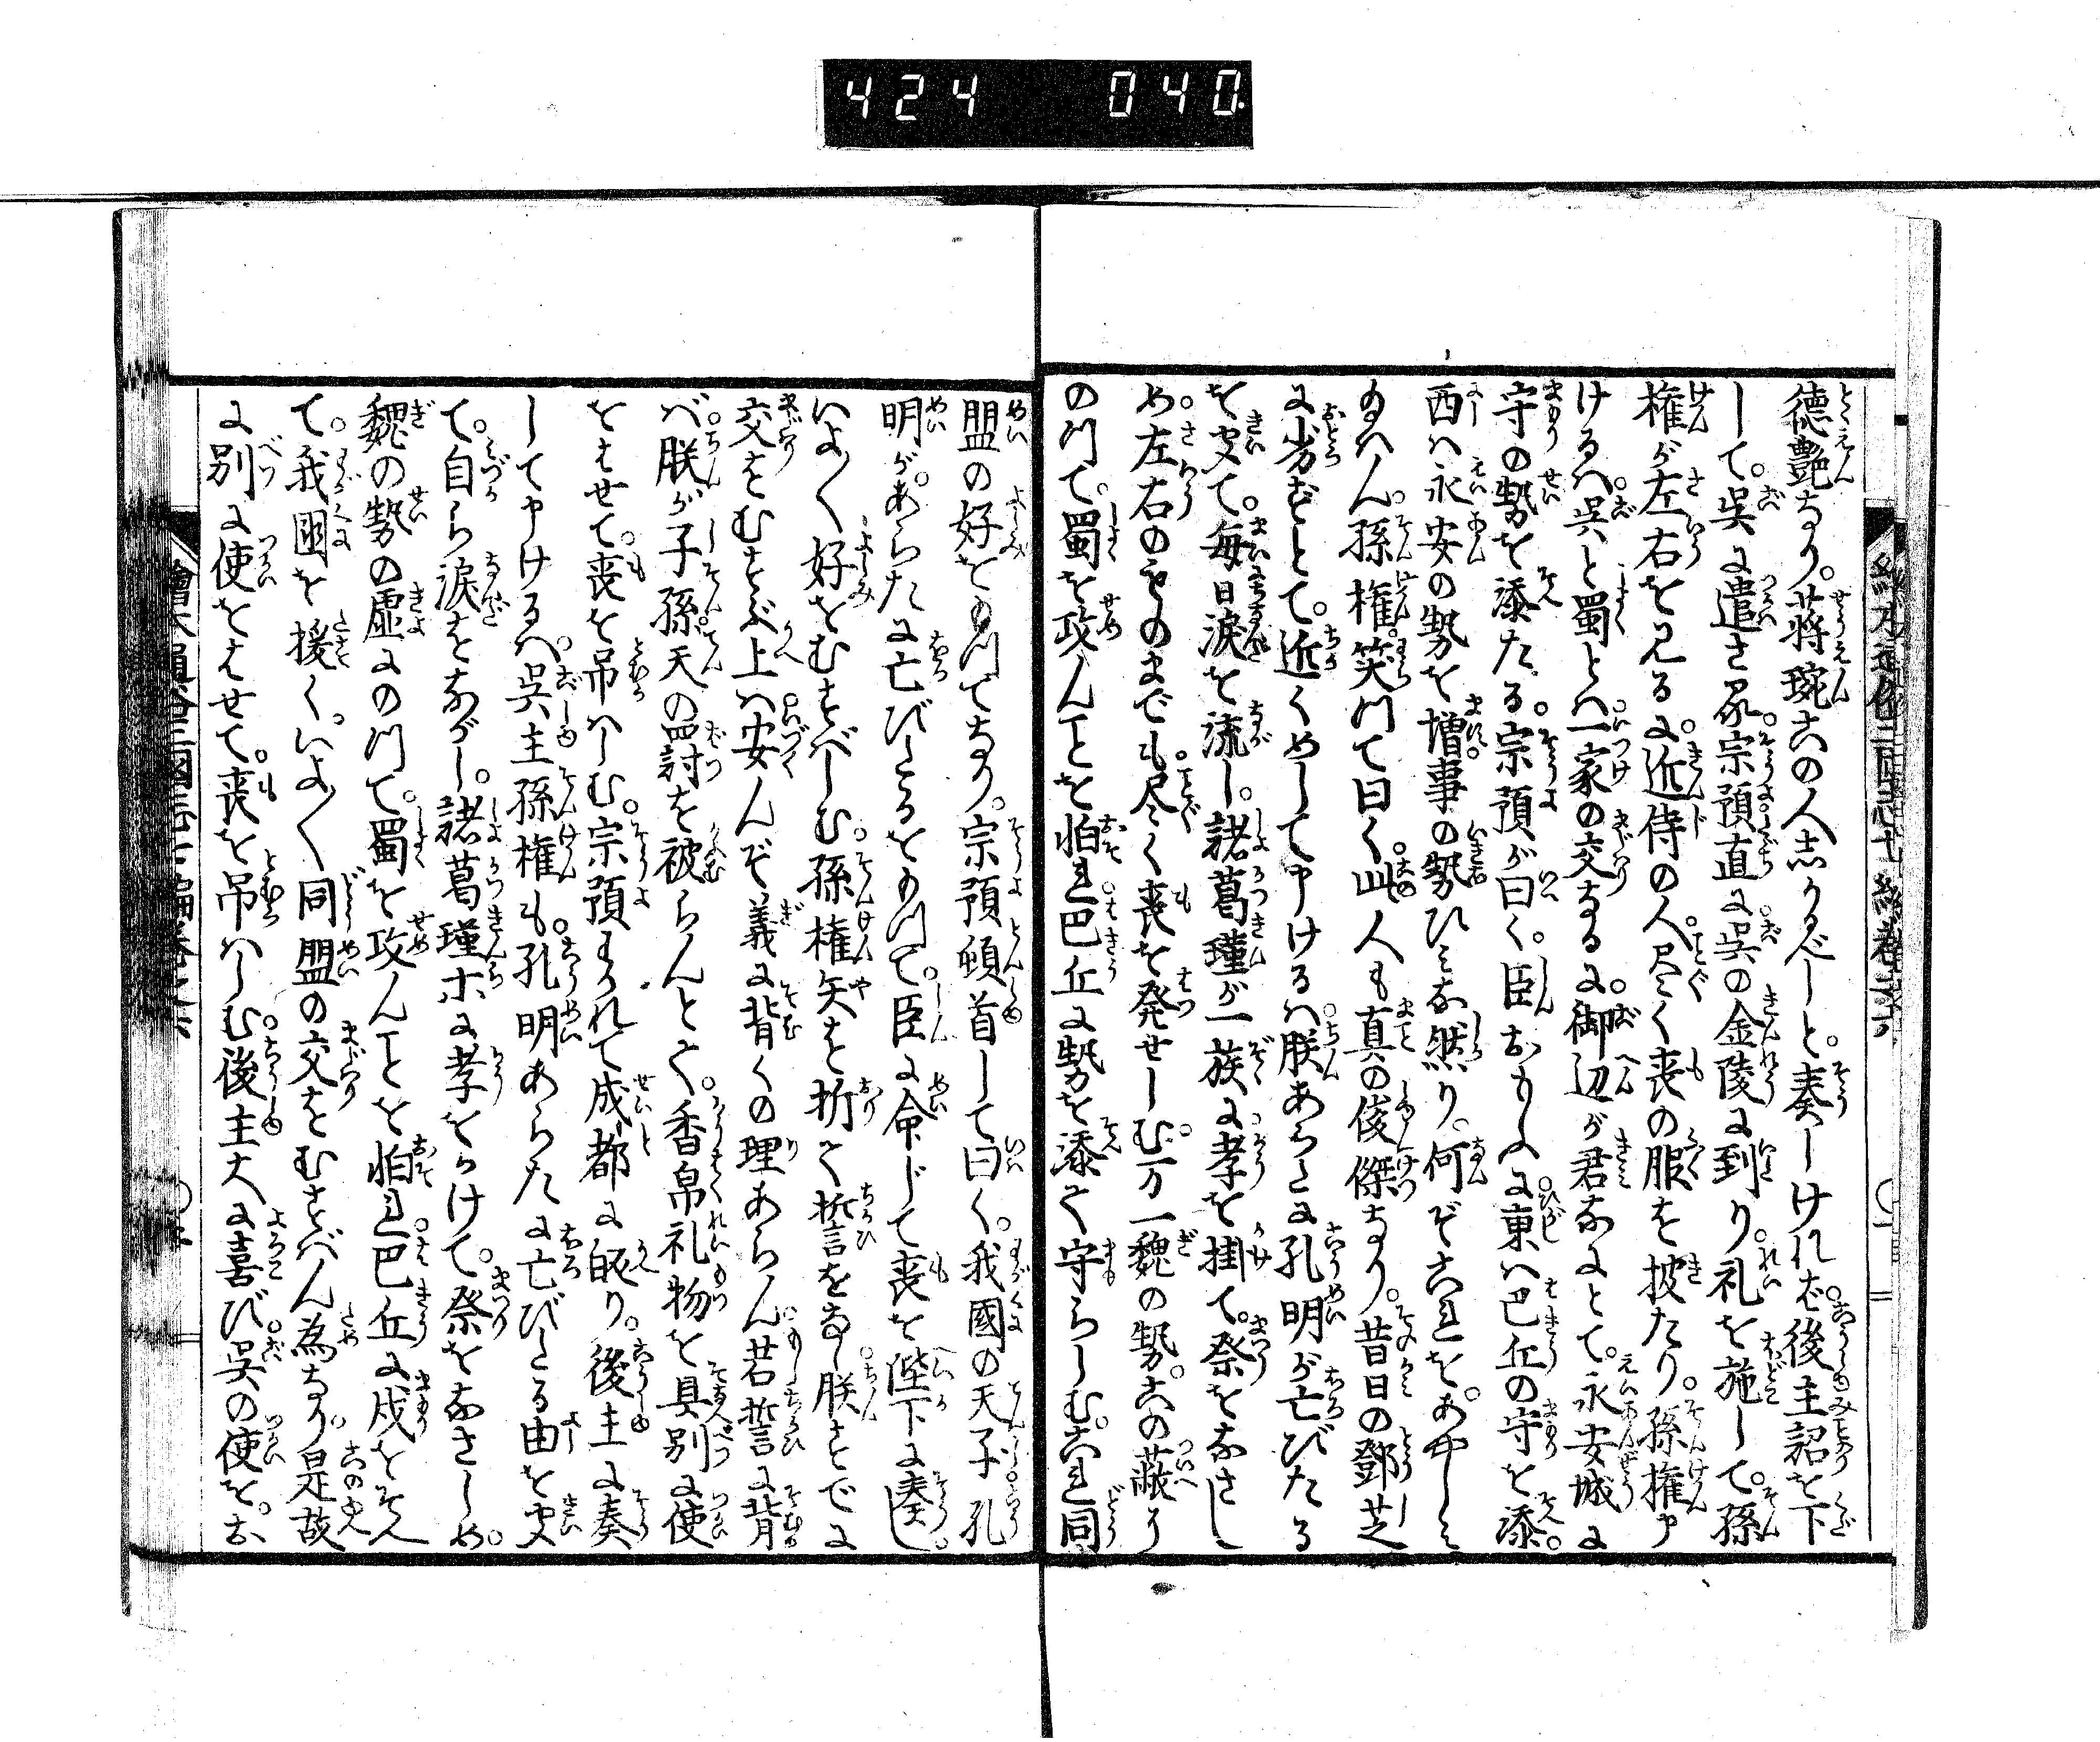 424 040
徳艶なり。蒋琬この人志かるべしと。奏しければ。後主詔を下
して。呉に遣さる。宗預直に呉の金陵に到り。礼を施して。孫
権が左右を見るに。近侍の人。尽く喪の服を披たり。孫権申
けるハ。呉と蜀とハ一家の交なるに。御辺が君なにとて。永安城に
守の勢を添たる。宗預が曰く。臣おもふに東ハ巴丘の守を添。
西ハ永安の勢を増事の勢ひミな然り。何ぞこれを。あやしミ
給ハん。孫権。笑つて曰く。此人も真の俊傑なり。昔日の鄧芝
に劣ずとて。近くめして申けるハ朕あらたに孔明が亡びたる
を聞て。毎日涙を流し。諸葛瑾が一族に孝を掛て。祭をなさし
め。左右のものまでも。尽く喪を発せしむ。万一魏の勢。この蔽に
のつて。蜀を攻んことを怕れ。巴丘に勢を添て守らしむ。これ同
盟の好をもつてなり。宗預頓首して曰く。我國の天子。孔
明が。あらたに亡びたるをもつて。臣に命じて喪を陛下に奏し。
いよ〱好をむすバしむ。孫権矢を折て誓をなし。朕すでに
交をむすぶ上ハ。安んぞ義に背くの理あらん。若誓に背
バ。朕が子孫。天の罰を被らんとて。香帛礼物を具。別に使
をはせて。喪を吊ハしむ。宗預わかれて成都に皈り。後主に奏
して申けるハ。呉主孫権も。孔明あらたに亡びたる由を聞
て。自ら涙をながし。諸葛瑾ホに孝をかけて。祭をなさしめ。
魏の勢の虚にのつて。蜀を攻んことを怕れ。巴丘に戍をそへ
て。我國を援く。いよ〱同盟の交をむすばん為なり。是故
に別に使をはせて。喪を吊ハしむ。後主大に喜び。呉の使を。お